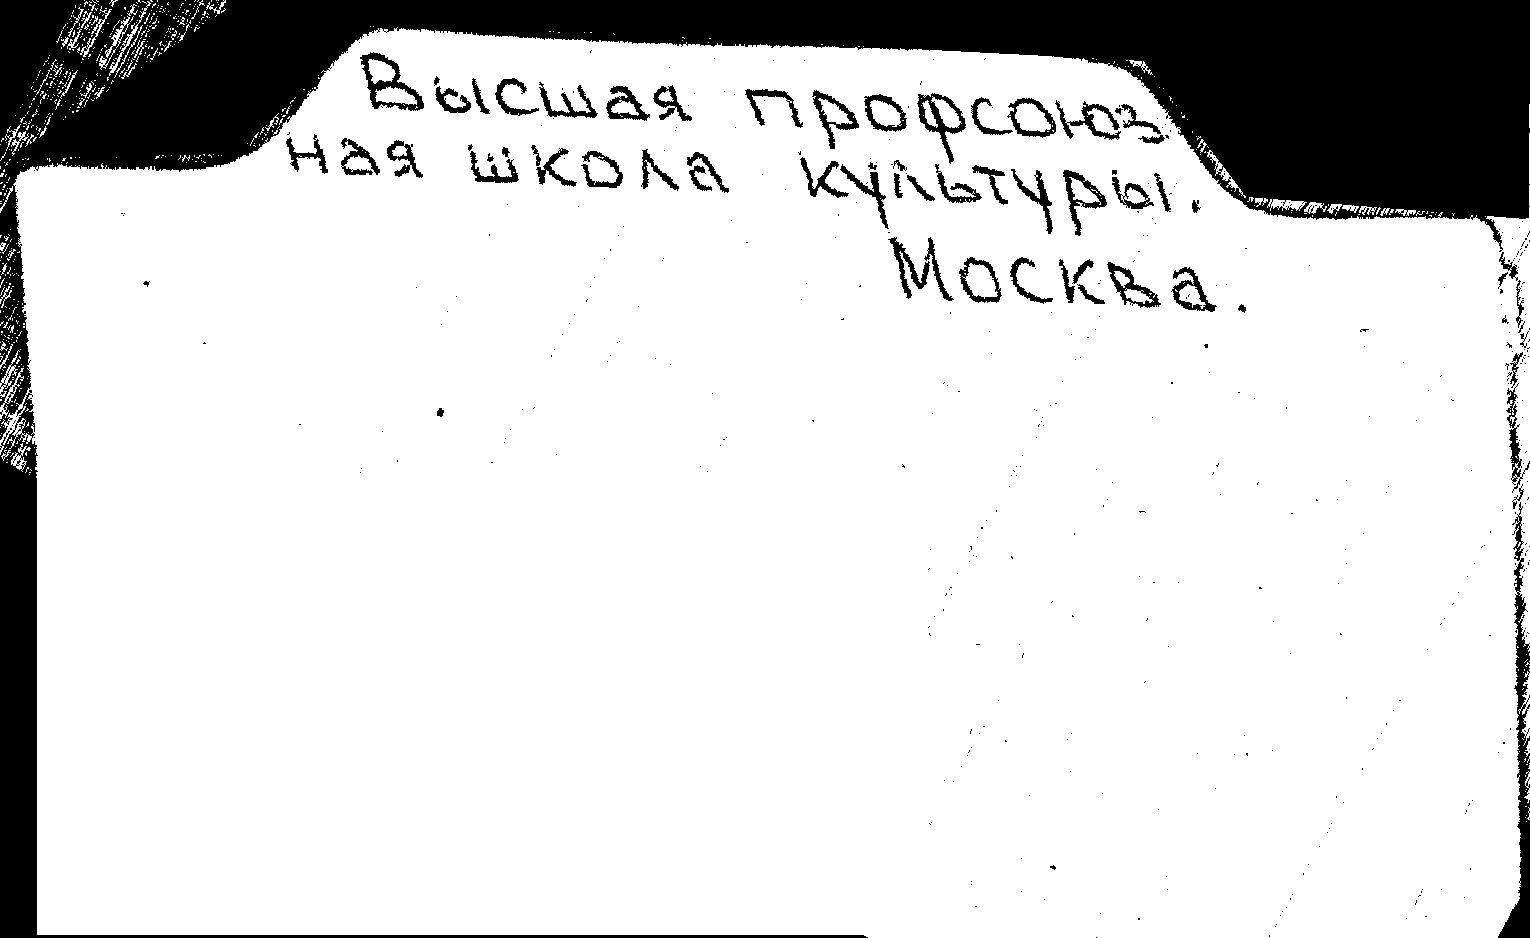 Высшая профсоюз
ная школа культуры.
Москва.